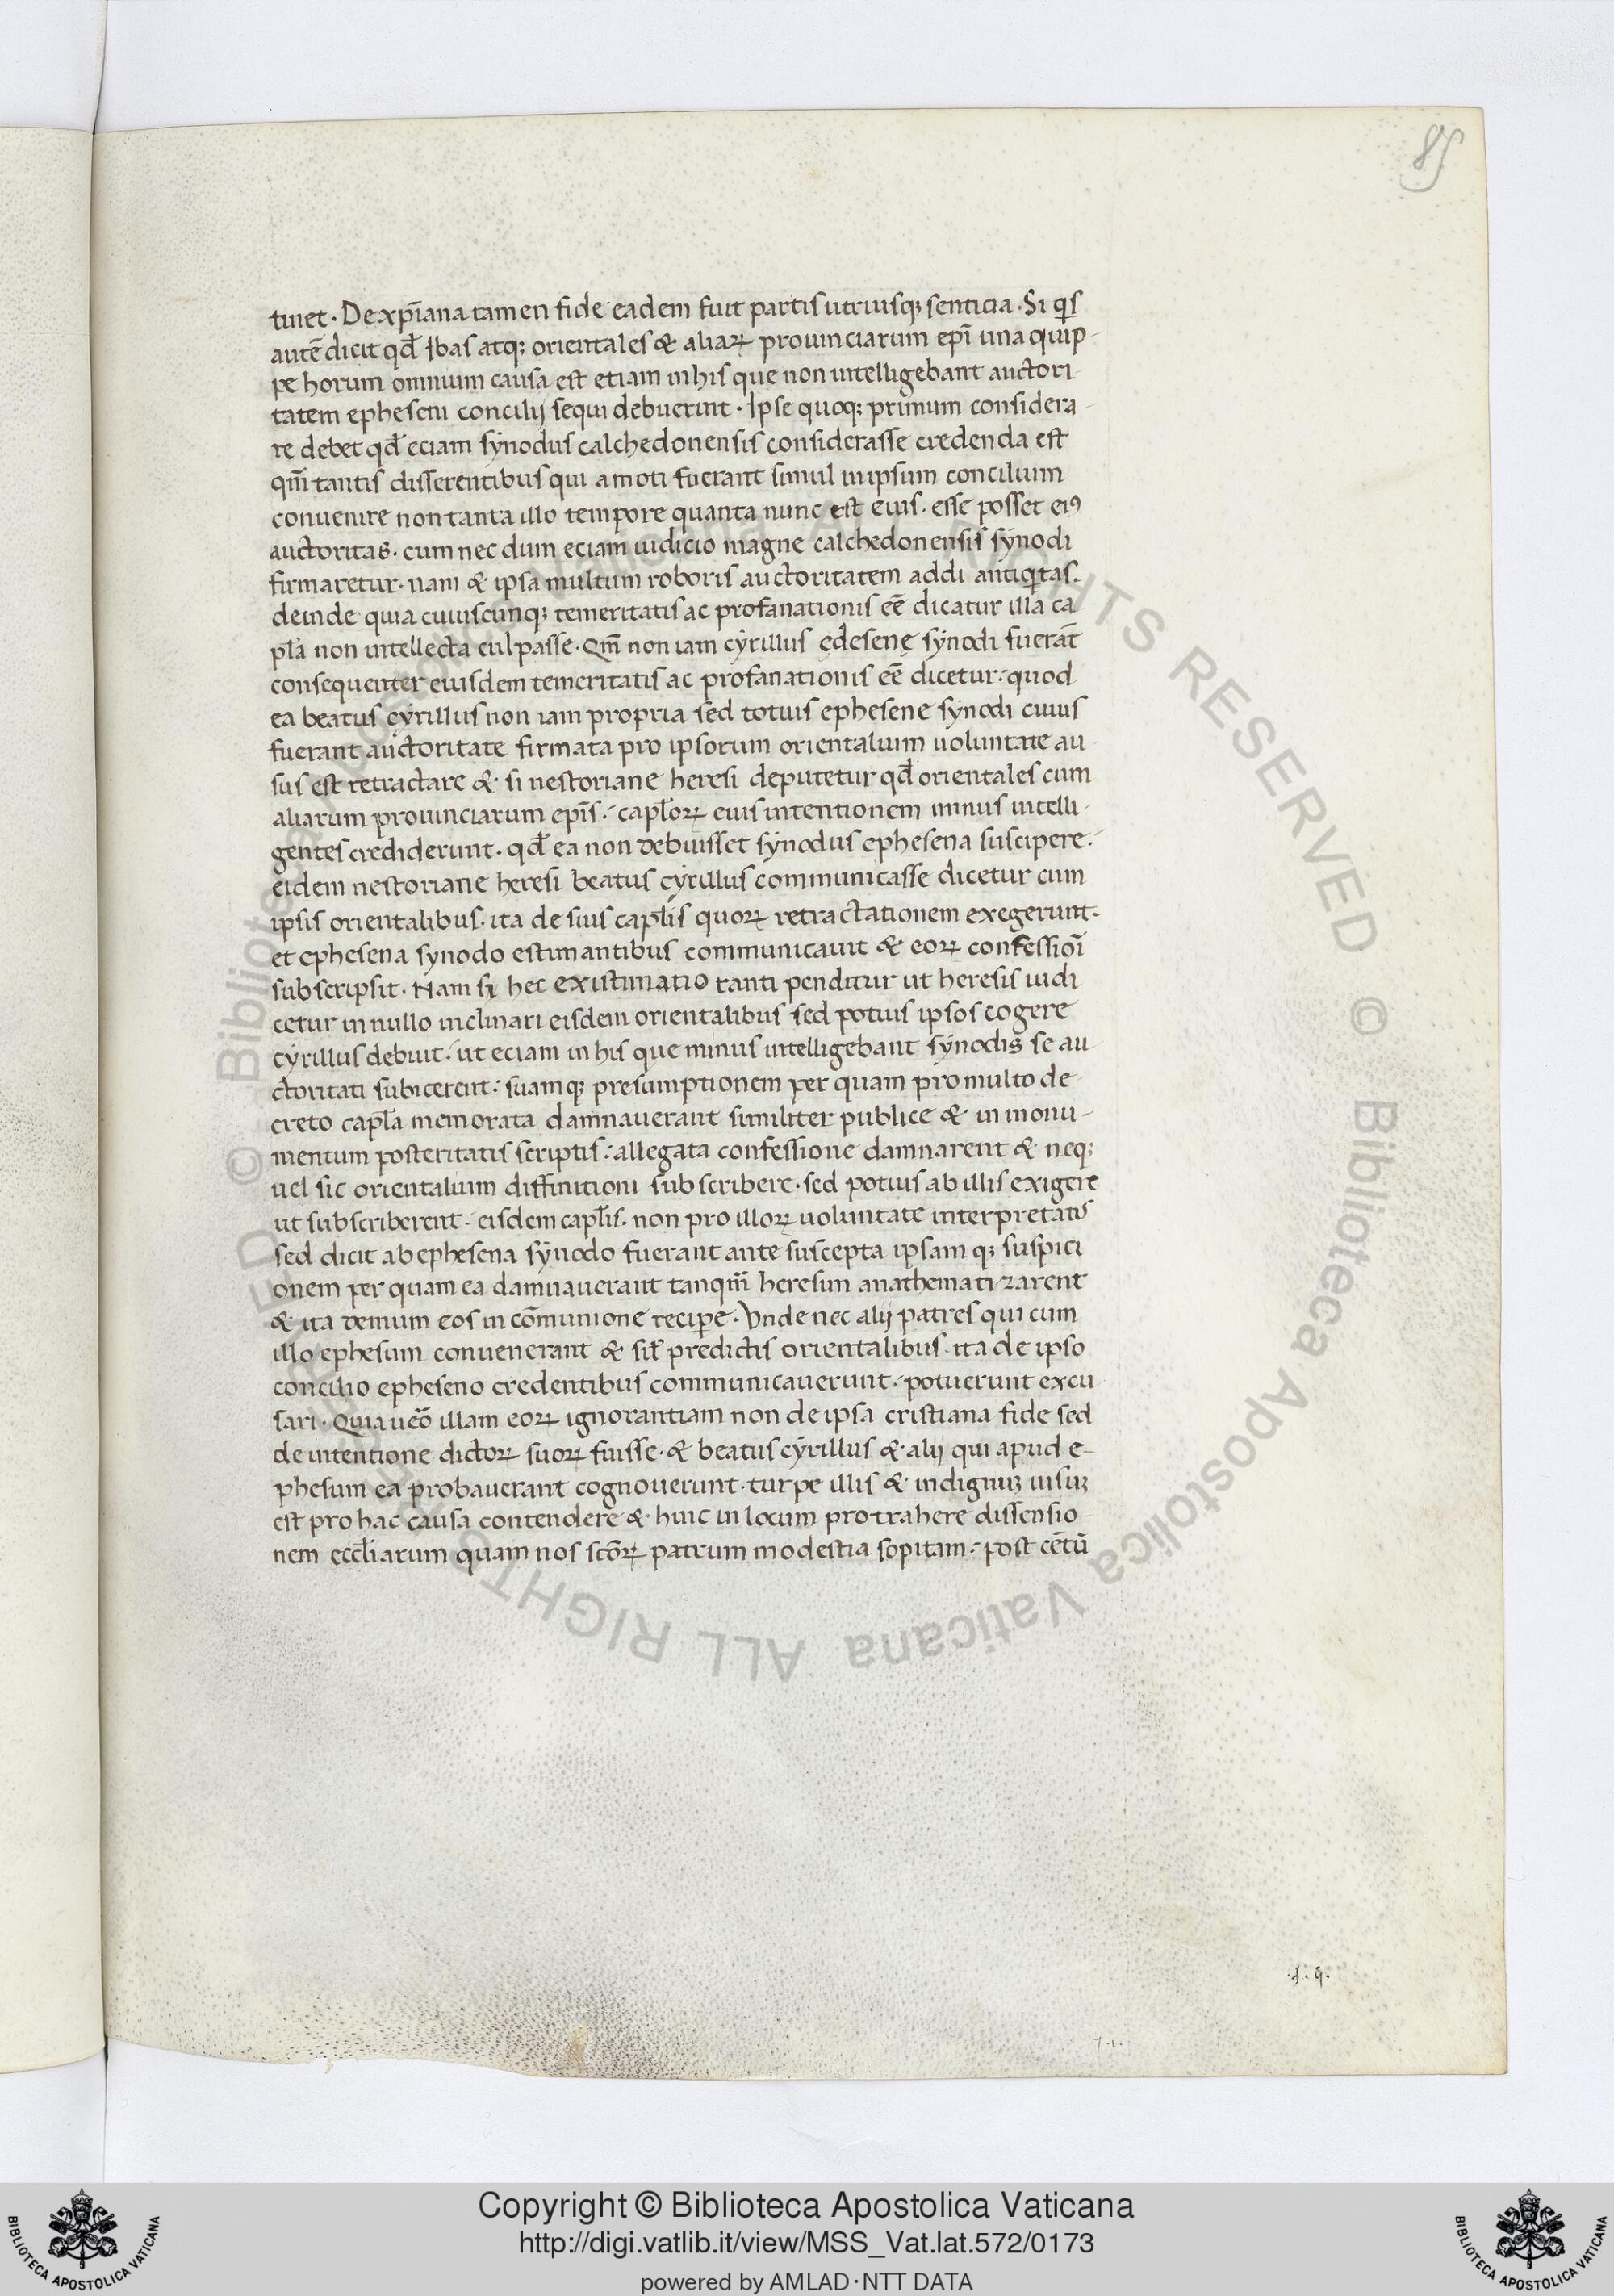 85
tinet · De xp̄iana tamen fide eadem fuit partis utriusq; sentēcia · Si q̄s
autē dicit qd̄ Ibas atq; orientales & aliaꝝ prouinciarum epī una quip-
pe horum omnium causa est etiam in his que non intelligebant auctori
tatem ephesini concilij sequi debuerint · Ipse quoq; primum considera-
re debet qd̄ eciam synodus calchedonensis considerasse credenda est
qm̄ tantis disserentibus qui amoti fuerant simul in ipsum concilium
conuenire non tanta illo tempore quanta nunc est eius · esse posset eiꝰ
auctoritas · cum nec dum eciam iudicio magne calchedonensis synodi
firmaretur · nam & ipsa multum roboris auctoritatem addi antiq̄tas ·
deinde quia cuiuscunq; temeritatis ac profanationis eē dicatur illa ca
pl̄a non intellecta culpasse · Qm̄ non iam cyrillus edesenę synodi fuerāt
consequenter eiusdem temeritatis ac profanationis eē dicetur : quod
ea beatus cyrillus non iam propria sed totius ephesene synodi cuius
fuerant auctoritate firmata pro ipsorum orientalium uoluntate au
sus est retractare & si nestoriane heresi deputetur qd̄ orientales cum
aliarum prouinciarum epīs : capl̄oꝝ eius intentionem minus intelli-
gentes crediderunt · qd̄ ea non debuisset synodus ephesena suscipere :
eidem nestoriane heresi beatus cyrillus communicasse dicetur cum
ipsis orientalibus · ita de suis capl̄is quoꝝ retractationem exegerunt ·
et ephesena synodo estimantibus communicauit & eoꝝ confessiōi
subscripsit · Nam si hec existimatio tanti penditur ut heresis iudi
cetur in nullo inclinari eisdem orientalibus sed potius ipsos cogere
cyrillus debuit : ut eciam in his que minus intelligebant synodis se au
ctoritati subicerent : suamq; presumptionem per quam pro multo de
creto capl̄a memorata damnauerant similiter publice & in monu-
mentum posteritatis scriptis : allegata confessione damnarent & neq;
uel sic orientalium diffinitioni subscribere · sed potius ab illis exigere
ut subscriberent · eisdem capl̄is · non pro illoꝝ uoluntate interpretatis
sed dicit ab ephesena synodo fuerant ante suscepta ipsamq; suspici
onem per quam ea damnauerant tanqm̄ heresim anathematizarent
& ita demum eos in cōmunione recipe · Vnde nec alij patres qui cum
illo ephesum conuenerant & sil̄ predictis orientalibus · ita de ipso
concilio epheseno credentibus communicauerunt : potuerunt excu
sari · Quia uēo illam eoꝝ ignorantiam non de ipsa cristiana fide sed
de intentione dictoꝝ suoꝝ fuisse · & beatus cyrillus & alij qui apud e-
phesum ea probauerant cognouerunt · turpe illis & indignuꝫ uisuꝫ
est pro hac causa contendere & huic in locum protrahere dissensio
nem eccl̄iarum quam nos scōꝝ patrum modestia sopitam : post cētū
Copyright © Biblioteca Apostolica Vaticana
http://digi.vatlib.it/view/MSS_Vat.lat.572/0173
powered by AMLAD·NTT DATA
BIBLIOTECA APOSTOLICA VATICANA
BIBLIOTECA APOSTOLICA VATICANA
© Biblioteca Apostolica Vaticana ALL RIGHTS RESERVED